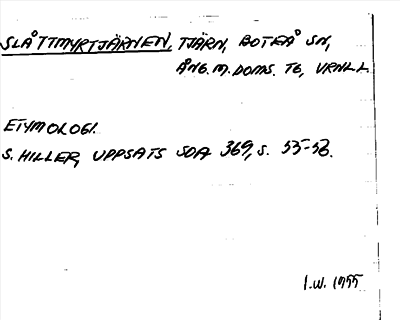 SLÅTTMYRTJÄRNEN, TJÄRN, BOTEÅ SN,
ÅNG. M. DOMS. TG, VRNLL
ETYMOLOGI.
S. HILLER, UPPSATS SOA 369, S. 53-56.
I.W. 1955